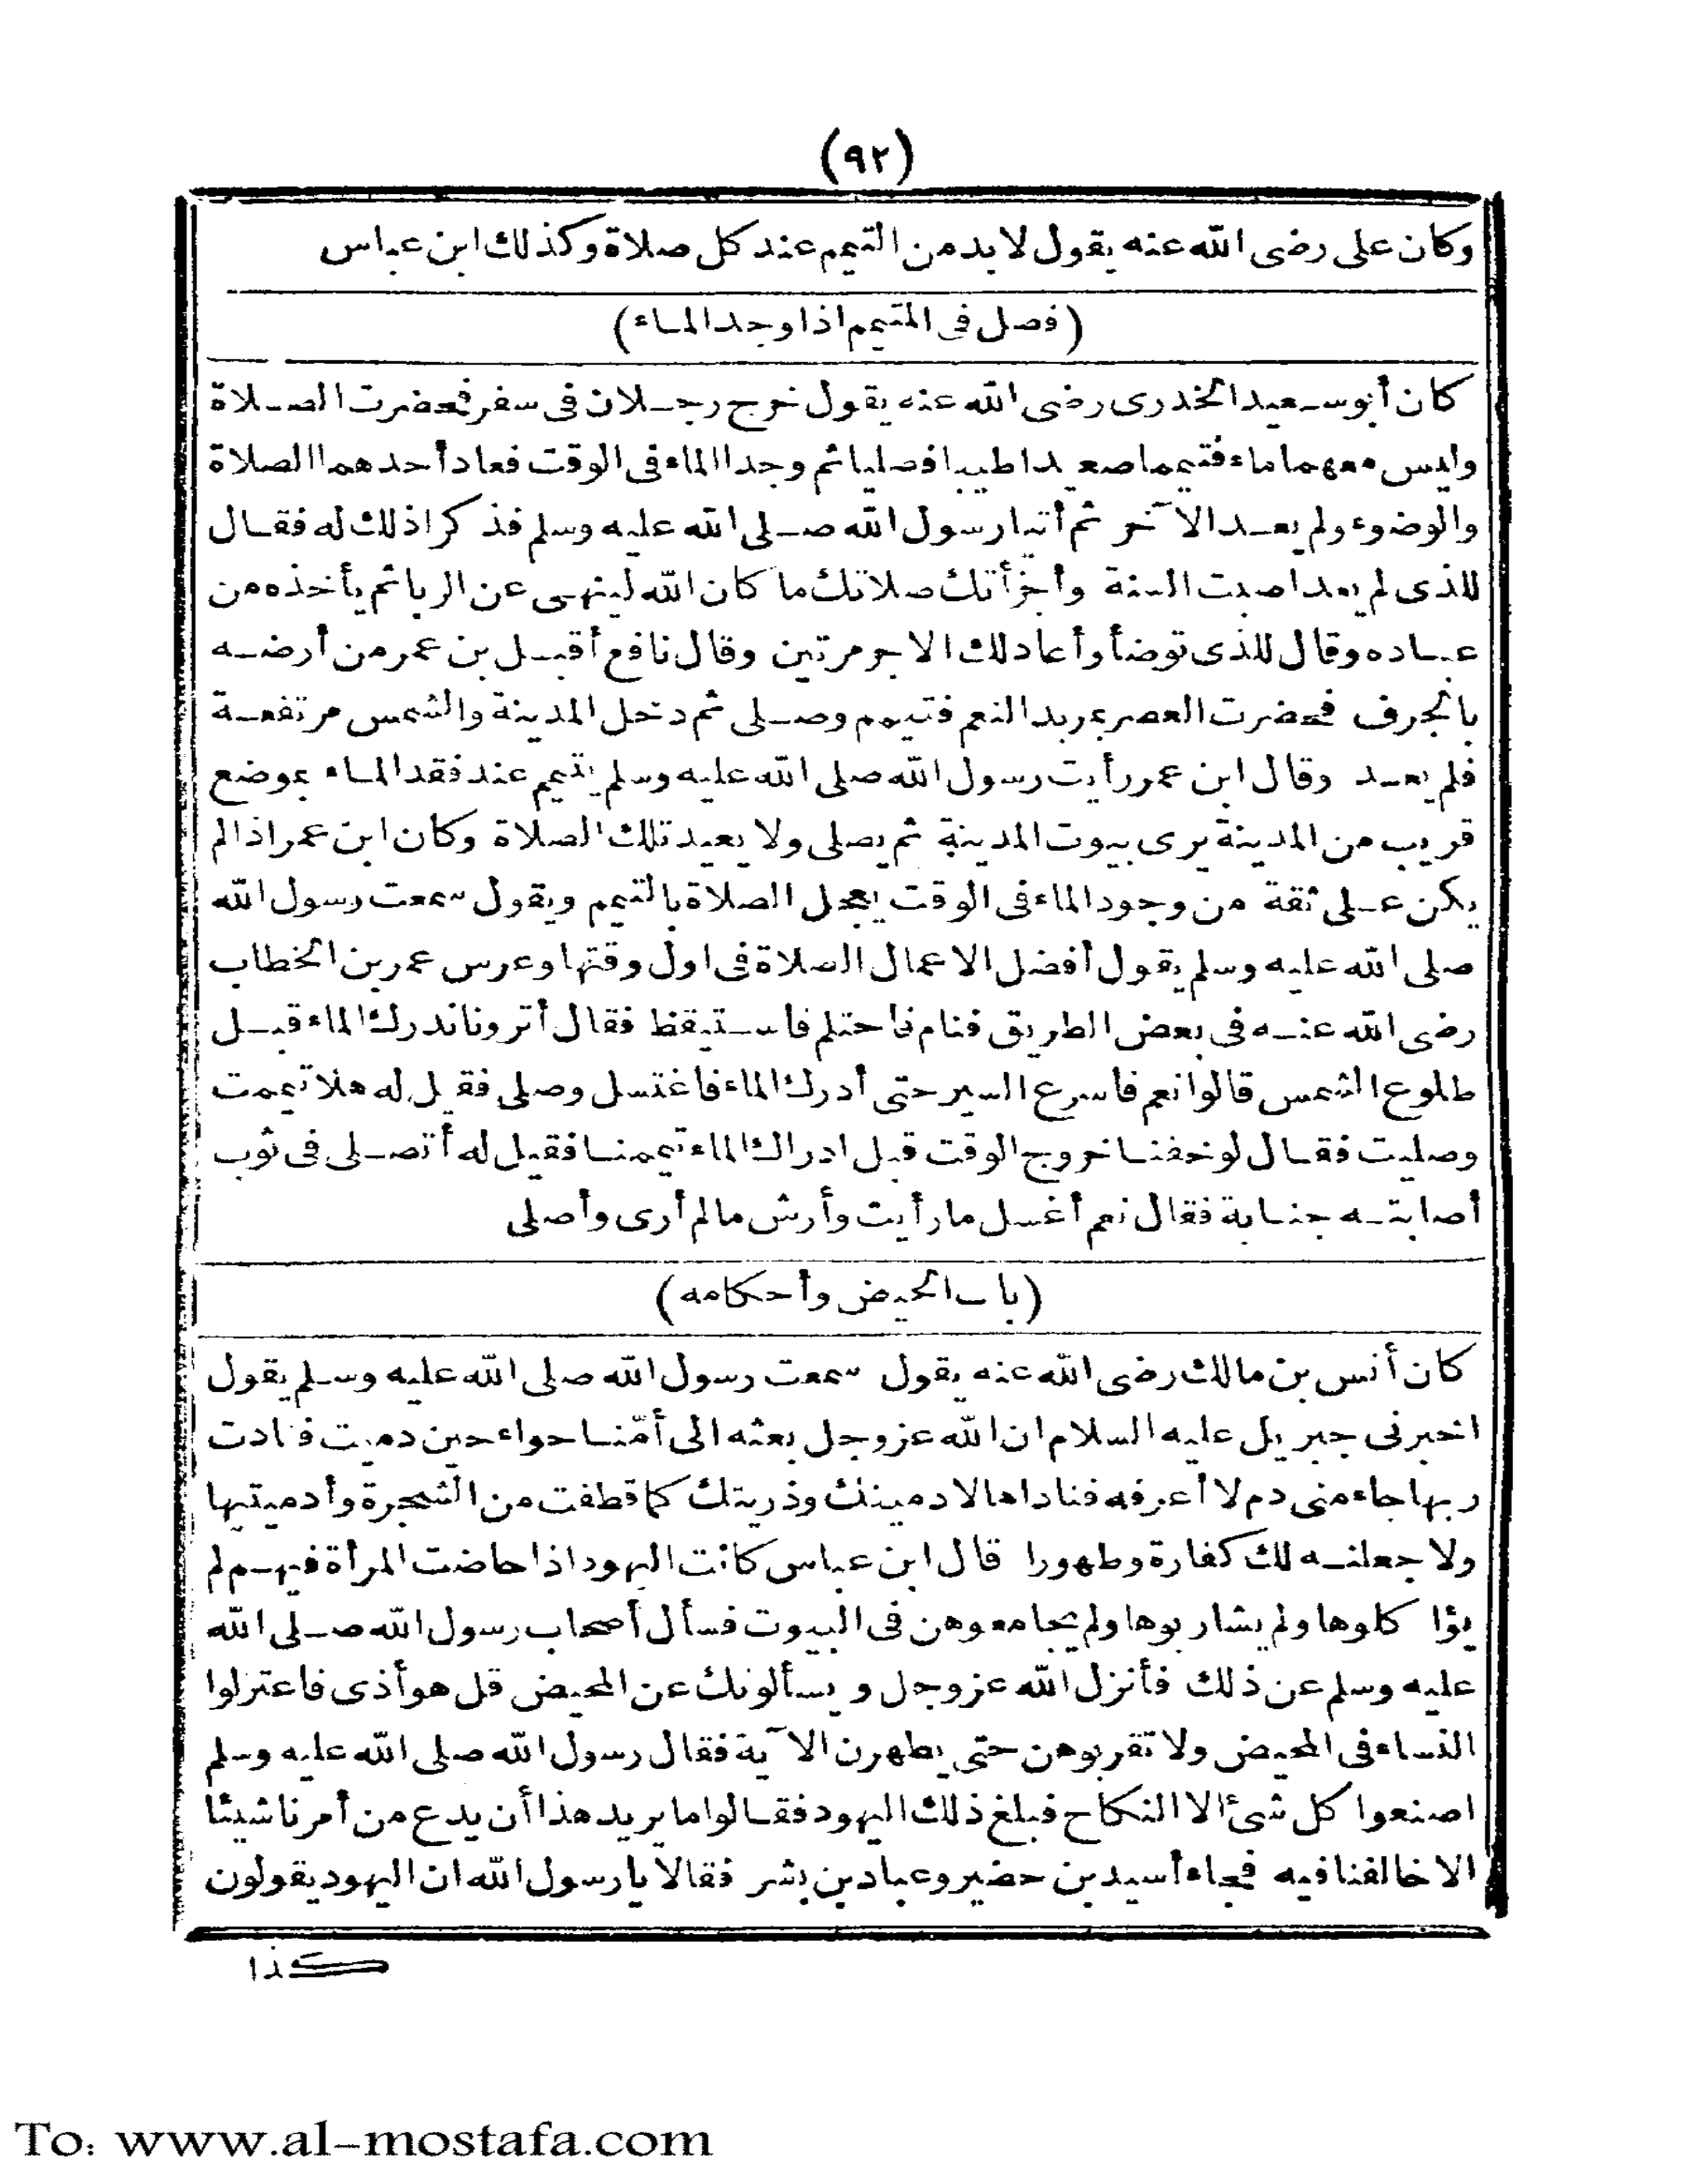 (٩٢)
وكان على رضى الله عنه يقول لابد من التيمم عند كل صلاة وكذلك ابن عباس
(فصل فى المتيمم اذا وجد الماء)
كان أبو سعيد الخدرى رضى الله عنه يقول خرج رجلان فى سفر فحضرت الصلاة
وليس معهما ماء فتيمما صعيدا طيبا فصليا ثم وجدا الماء فى الوقت فعاد أحدهما الصلاة
والوضوء ولم يعد الآخر ثم أتيا رسول الله صلى الله عليه وسلم فذكرا ذلك له فقال
للذى لم يعد اصبت السنة وأجزأتك صلاتك ما كان الله لينهى عن الربا ثم يأخذه من
عباده وقال للذى توضأ وأعاد لك الاجر مرتين وقال نافع أقبل بن عمر من أرضه
بالجرف فحضرت العصر بمربد النعم فتيمم وصلى ثم دخل المدينة والشمس مرتفعة
فلم يعد وقال ابن عمر رأيت رسول الله صلى الله عليه وسلم يتيمم عند فقد الماء بموضع
قريب من المدينة يرى بيوت المدينة ثم يصلى ولا يعيد تلك الصلاة وكان ابن عمر اذا لم
يكن على ثقة من وجود الماء فى الوقت يعجل الصلاة بالتيمم ويقول سمعت رسول الله
صلى الله عليه وسلم يقول أفضل الاعمال الصلاة فى اول وقتها وعرس عمر بن الخطاب
رضى الله عنه فى بعض الطريق فنام فاحتلم فاستيقظ فقال أترونا ندرك الماء قبل
طلوع الشمس قالوا نعم فاسرع السير حتى أدرك الماء فاغتسل وصلى فقيل له هلا تيممت
وصليت فقال لو خفنا خروج الوقت قبل ادراك الماء تيممنا فقيل له أتصلى فى ثوب
أصابته جنابة فقال نعم أغسل ما رأيت وأرش ما لم أرى وأصلى
(باب الحيض وأحكامه)
كان أنس بن مالك رضى الله عنه يقول سمعت رسول الله صلى الله عليه وسلم يقول
اخبرنى جبريل عليه السلام ان الله عز وجل بعثه الى أمّنا حواء حين دميت فنادت
ربها جاء منى دم لا أعرفه فناداها لادمينك وذريتك كما قطفت من الشجرة وأدميتيها
ولاجعلنه لك كفارة وطهورا قال ابن عباس كانت اليهود اذا حاضت المرأة فيهم لم
يؤاكلوها ولم يشاربوها ولم يجامعوهن فى البيوت فسأل أصحاب رسول الله صلى الله
عليه وسلم عن ذلك فأنزل الله عز وجل ويسألونك عن المحيض قل هو أذى فاعتزلوا
النساء فى المحيض ولا تقربوهن حتى يطهرن الآية فقال رسول الله صلى الله عليه وسلم
اصنعوا كل شئ الا النكاح فبلغ ذلك اليهود فقالوا ما يريد هذا أن يدع من أمرنا شيئا
الا خالفنا فيه فجاء أسيد بن حضير وعباد بن بشر فقالا يا رسول الله ان اليهود يقولون
كذا
To: www.al-mostafa.com